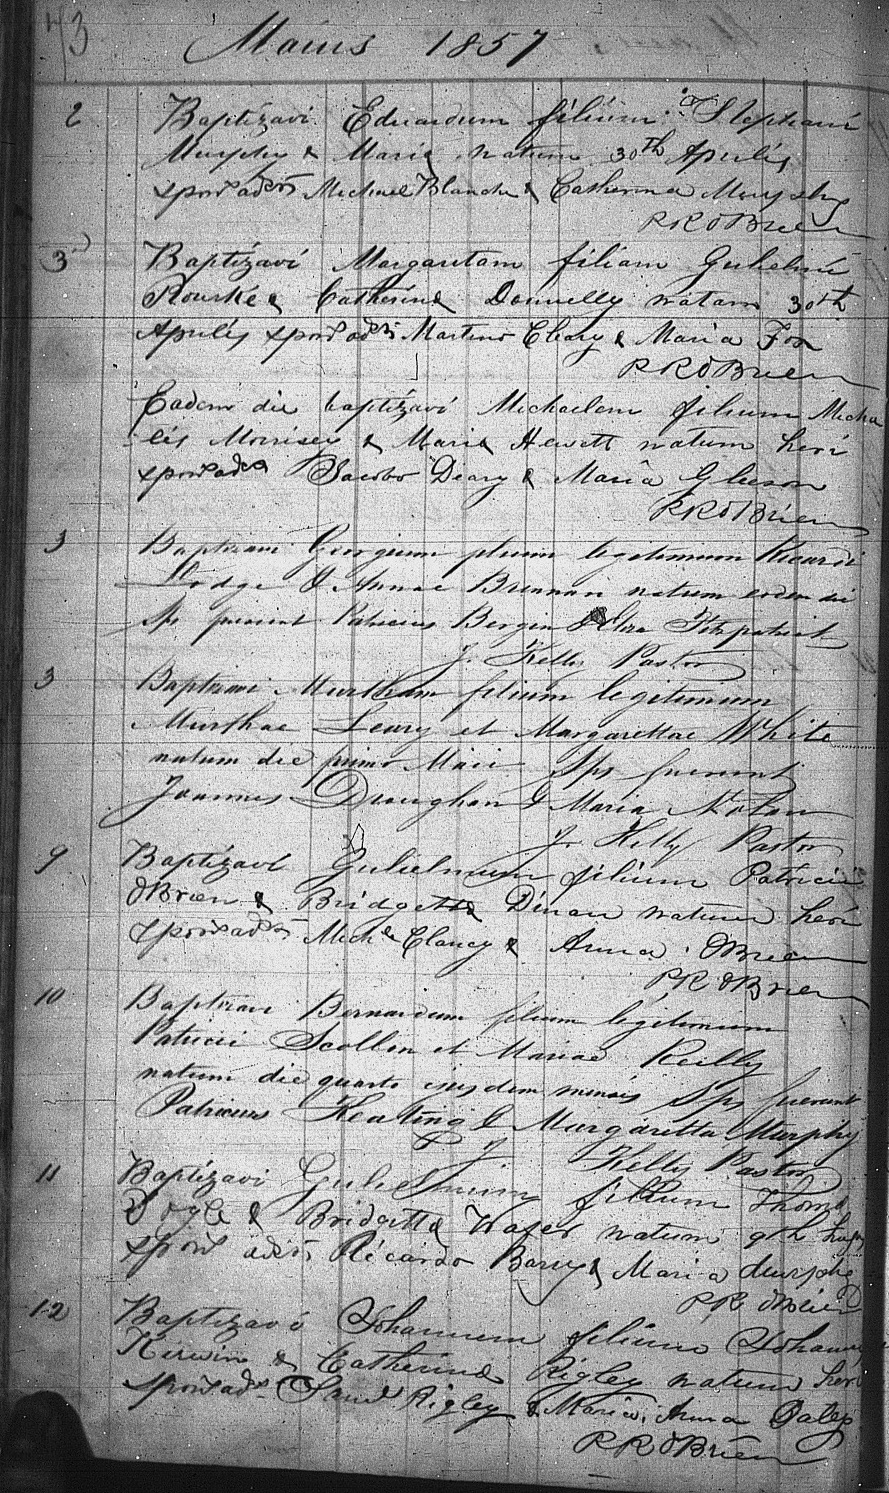 73
Maius 1857
2 Baptizavi Eduardum filium Stephani
Murphy & Maria natum 30th Aprilis
spons adtis Michael Blanche & Catherina Murphy
P R O Brien
3 Baptizavi Margaretam filiam Gulielmi
Rourke & Catherina Donnelly natam 30th
Aprilis spons adtis Martino Cleary & Maria Fox
P R O Brien
Eadem die baptizavi Michaelem filium Micha
elis Morrisey & Maria Hewitt natum heri
spons adts Jacobo Deary & Maria Gleeson
P R O Brien
3 Baptizavi Georgium filium legitimum Ricardi
Lodge & Annae Brennan natum eodem die
Sps fuerunt Patricius Bergin & Eliza Fitzpatrick
J. Kelly Pastor
3 Baptizavi Murtham filium legitimum
Murthae Leary et Margarettae White
natum die primo Maii Sps fuerunt
Joannes Droughan & Maria Nolan
J. Kelly Pastor
9 Baptizavi Gulielmum filium Patricii
OBrien & Bridgetta Dinan natum heri
spons adtis Mich Clancy & Anna OBrien
P R O Brien
10 Baptizavi Bernardum filium legitimum
Patricii Scollen et Mariae Reilly
natum die quarto ejusdem mensis Sps fuerunt
Patricius Keating & Margaretta Murphy
J Kelly Pastor
11 Baptizavi Gulielmum filium Thoma
Doyle & Bridgetta Wafer natum 9th hujus
spons adtis Ricardo Barry & Maria Murphy
P R OBrien
12 Baptizavi Johannem filium Johannis
Kirwin & Catherina Rigley natum heri
spons adts Saml Rigley & Maria Anna Daley
P R O Brien